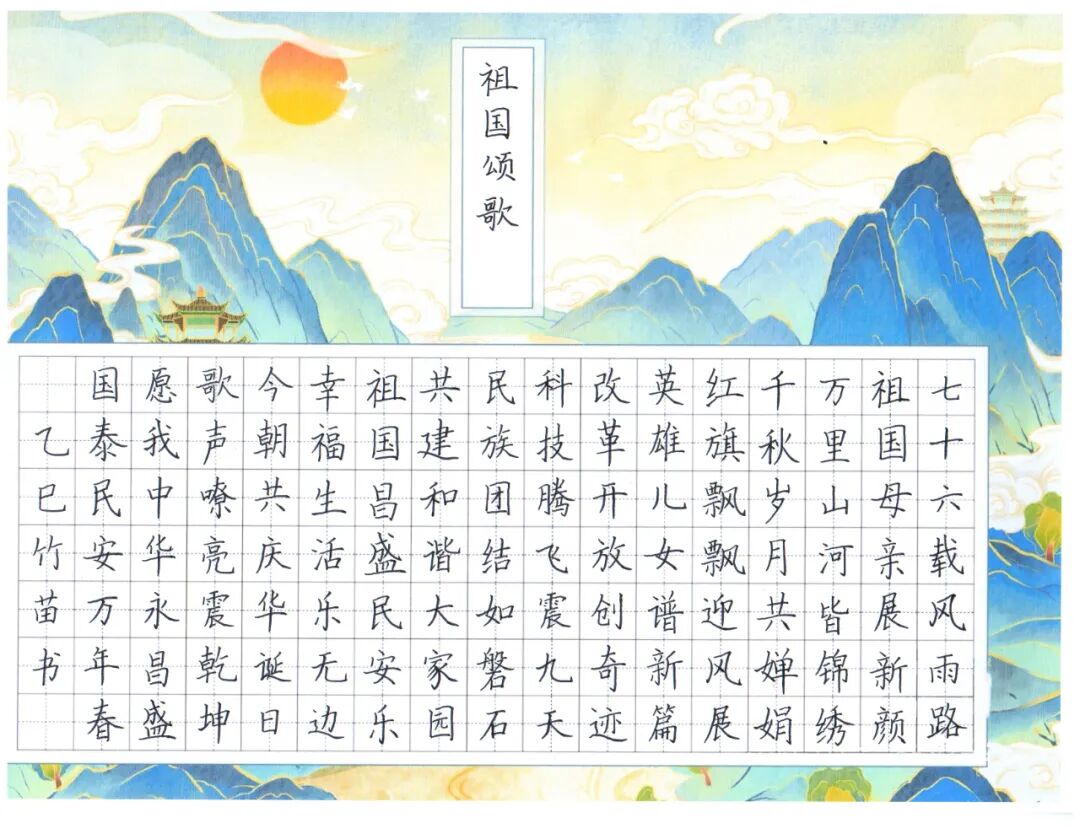 祖国颂歌
七十六载风雨路
祖国母亲展新颜
万里山河皆锦绣
千秋岁月共婵娟
红旗飘飘迎风展
英雄儿女谱新篇
改革开放创奇迹
科技腾飞震九天
民族团结如磐石
共建和谐大家园
祖国昌盛民安乐
幸福生活乐无边
今朝共庆华诞日
歌声嘹亮震乾坤
愿我中华永昌盛
国泰民安万年春
乙巳竹苗书